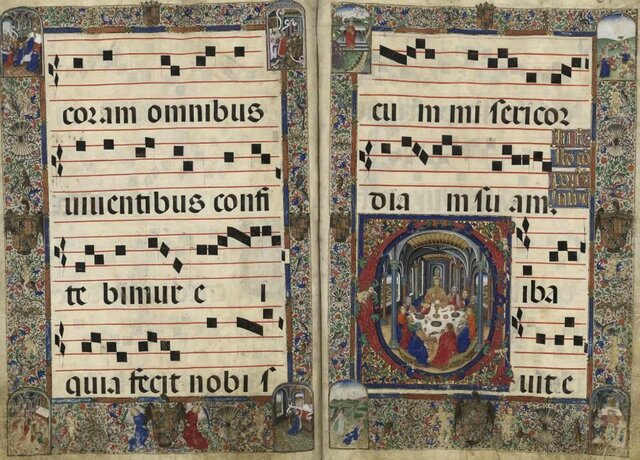 coram omnibus
uiuentibus confi
te bimur e i
quia fecit nobi s
cu m mi sericor
dia m su am.
iba
uit e